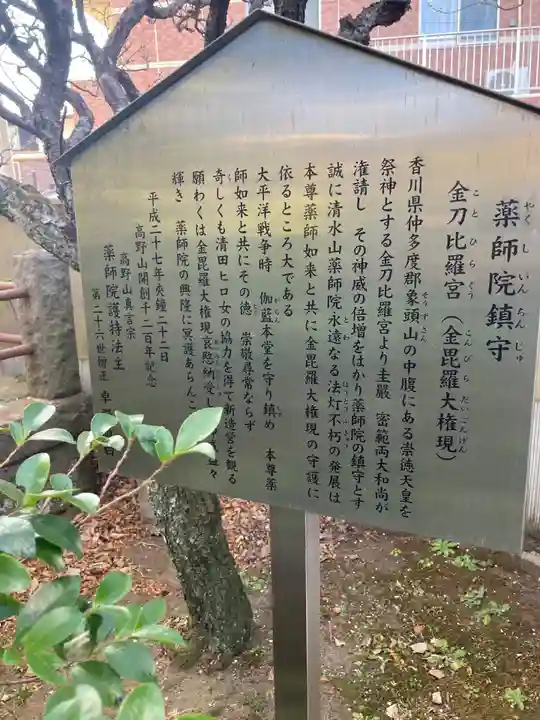 薬師院鎮守
やくしいんちんじゅ
金刀比羅宮（金毘羅大権現）
ことひらぐう こんぴらだいごんげん
香川県仲多度郡象頭山の中腹にある崇徳天皇を
ぞうずさん
祭神とする金刀比羅宮より圭嚴 密範両大和尚が
潅請し その神威の倍増をはかり薬師院の鎮守とす
誠に清水山薬師院永遠なる法灯不朽の発展は
とわ ほうとうふきゅう
本尊薬師如来と共に金毘羅大権現の守護に
依るところ大である
大平洋戦争時 伽藍本堂を守り鎮め 本尊薬
がらん
師如来と共にその徳 崇敬尋常ならず
奇しくも清田ヒロ女の協力を得て新造営を観る
願わくは金毘羅大権現哀愍納受し
々
輝き 薬師院の興隆に冥護あらんこ
平成二十七年 二十二日
高野山開創千二百年記念
高野山真言宗
薬師院護持法主
第二十六世僧正